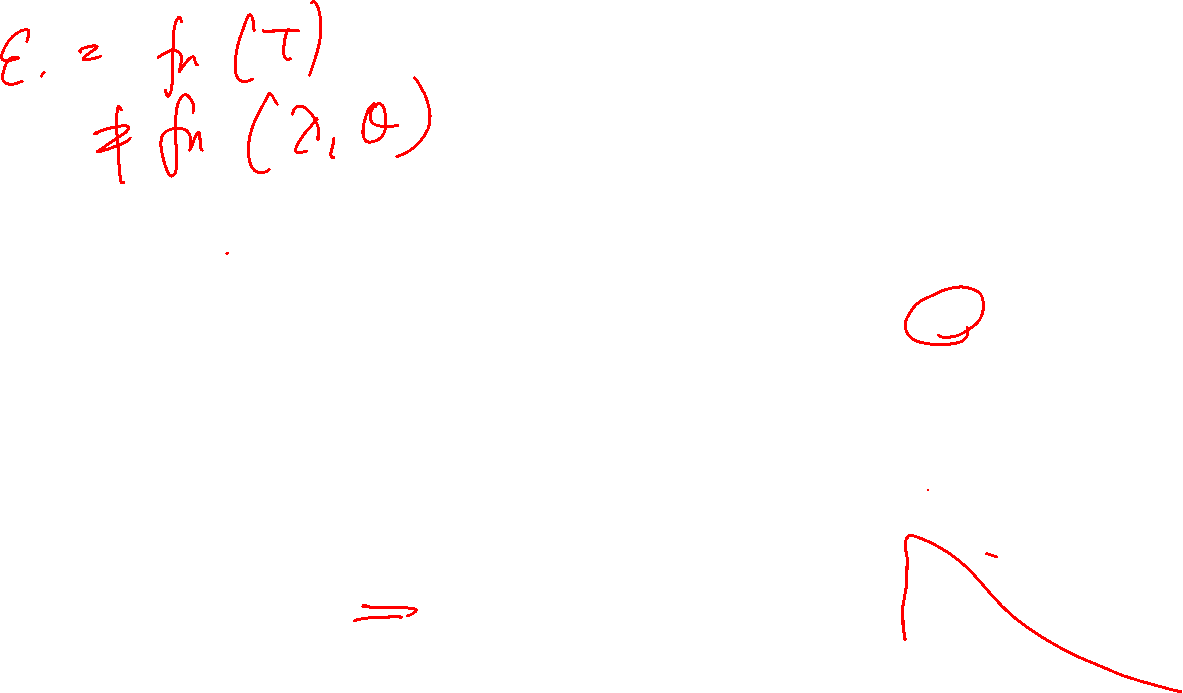 ε. = fn (T)
≠ fn (λ, θ)
=